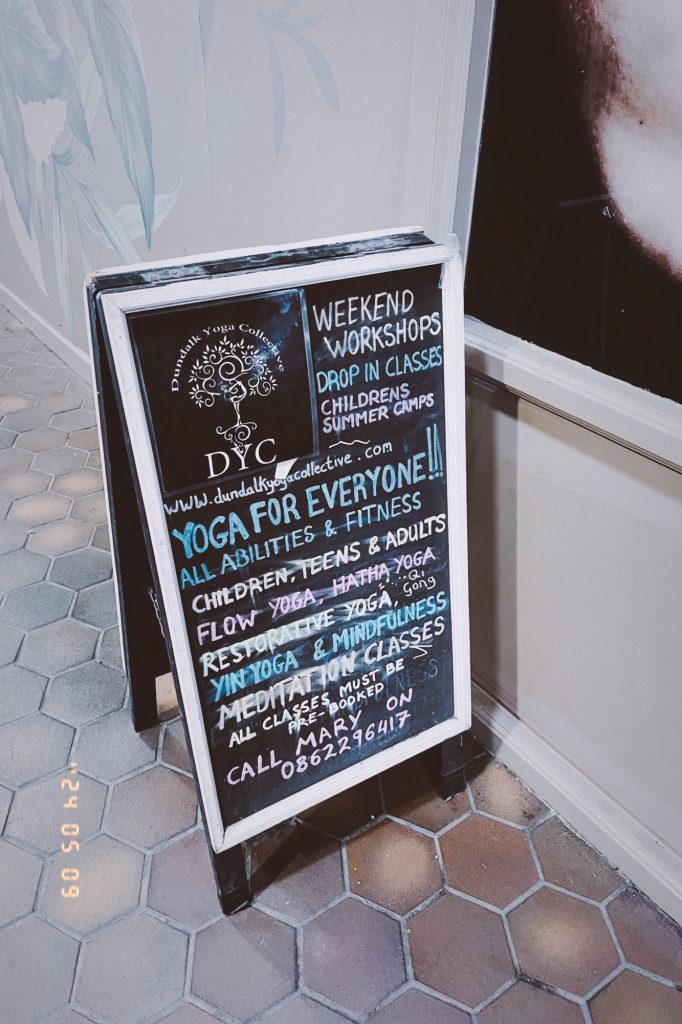 Dundalk Yoga Collective
DYC
WEEKEND
WORKSHOPS
DROP IN CLASSES
CHILDRENS
SUMMER CAMPS
www.dundalkyogacollective.com
YOGA FOR EVERYONE!!
ALL ABILITIES & FITNESS
CHILDREN, TEENS & ADULTS
FLOW YOGA, HATHA YOGA
RESTORATIVE YOGA, Qi Gong
YIN YOGA & MINDFULNESS
MEDITATION CLASSES
ALL CLASSES MUST BE
PRE-BOOKED
CALL MARY ON
0862296417
'24 05 09